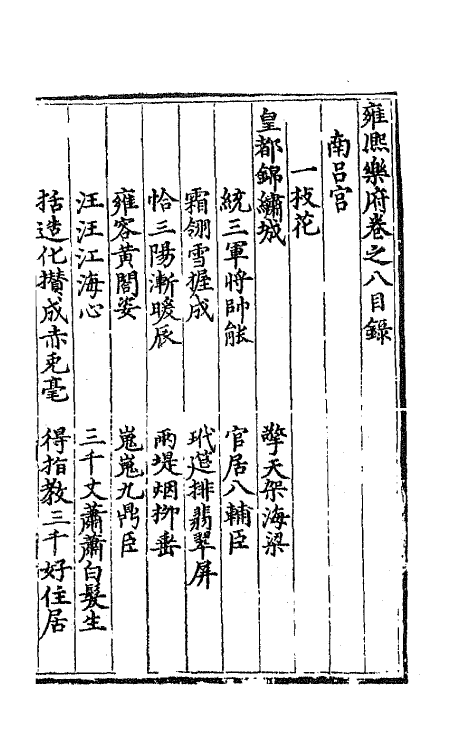 雍熈樂府卷之八目錄
南呂宮
一枝花
皇都錦繡城　擎天架海梁
統三軍將帥能　官居八輔臣
霜翎雪握成　玳筵排翡翠屏
恰三陽漸暖辰　兩堤烟栁垂
雍容黃閣姿　嵬嵬九鼎臣
汪汪江海心　三千丈蕭蕭白髮生
括造化攅成赤兎毫　得指教三千好住居